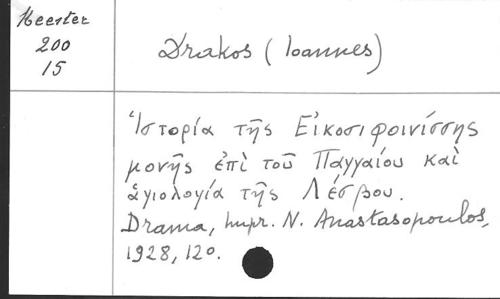 Meester
200
15
Drakos (Ioannes)
Ἱστορία τῆς Εἰκοσιφοινίσσης
μονῆς ἐπὶ τοῦ Παγγαίου καὶ
ἁγιολογία τῆς Λέσβου.
Drama, Impr. N. Anastasopoulos,
1928, 12º.